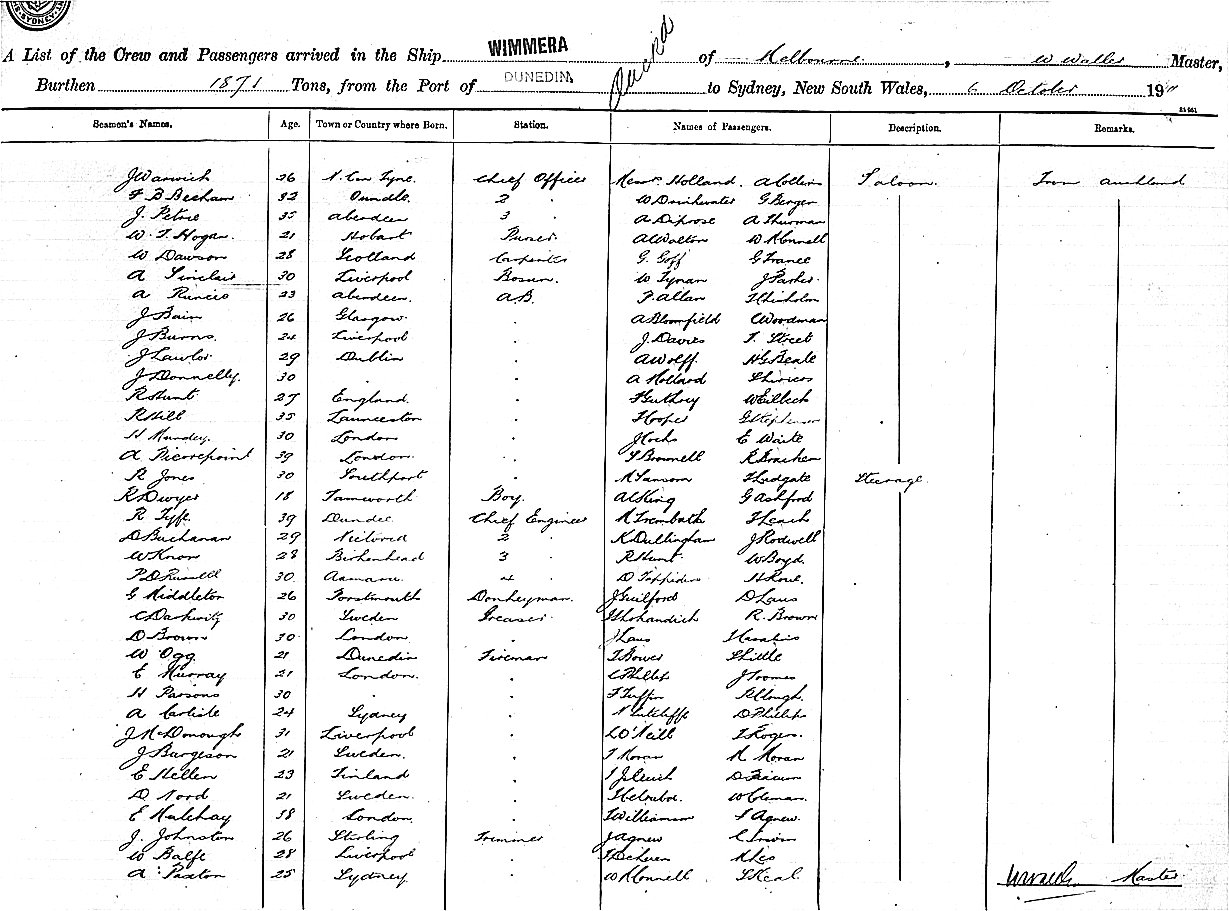 SYDNEY
A List of the Crew and Passengers arrived in the Ship WIMMERA of Melbourne, W Waller Master,
Burthen 1871 Tons, from the Port of DUNEDIN, to Sydney, New South Wales, 6 October 1911
Seamen's Names. Age. Town or Country where Born. Station. Names of Passengers. Description. Remarks.
J Warwick 36 N. On Tyne Chief Officer Messrs Holland. A Collins Saloon. From Auckland
F B Besham 32 Oundle 2 " W Drinkwater G Berger
J. Petrie 35 Aberdeen 3 " A Diprose A Thurman
W. T. Hogan. 21 Hobart Purser. A Walton W R Connell
W Dawson 28 Scotland Carpenter G. Goff G France
A Sinclair 30 Liverpool Bosun. W Tynan J Parker
A Runcie 23 Aberdeen. A.B. F. Allan Chisholm
J Bain 26 Glasgow. " A Bloomfield C Woodman
J Burns. 24 Liverpool " J. Davies T. Street
J Lawlor 29 Dublin " A Wolff. H G Beale
J Donnelly. 30 " " A Holland
R Hunt 27 England. " Guthry
R Hill 35 Launceston " Hooper G Stephenson
H Munday. 30 London " J Cocks E Waite
A Picorepoint 39 London. " Brownell
R Jones 30 Southport " Ludgate Steerage.
R Dwyer 18 Tamworth Boy. A C King G Ashford
R Fyfe. 39 Dundee. Chief Engineer M Trembath Leach
D Buchanan 29 2 " K Dullingham J Rodwell
W Knox 28 Birkenhead 3 " R Hunt W Boyd.
P. D. Russell 30. Oamaru. 4 " D
G Middleton 26 Portsmouth Donkeyman. J Guilford D Laus
30 Sweden Greaser. R. Brown
D Brown 30 London. " J Laus
W Ogg. 21 Dunedin Fireman Bower Little
E Murray 21 London. " C Phillips J Toomes
H Parsons 30 " " F Tuffin R Clough.
A Carlisle 24 Sydney " Sutcliffe D Phillips
J McDonough 31 Liverpool " L O'Neill Rogers.
J Bargeson 21 Sweden. " T Moran M Moran
E Hellen 23 Finland "
D Nord 21 Sweden. " W Coleman.
E Mulchay 38 London. " Williamson Agnew.
J. Johnston 26 Stirling Trimmer J Agnew C Irwin
W Balfe 28 Liverpool "
A Paxton 25 Sydney. " W R Connell Keal Master